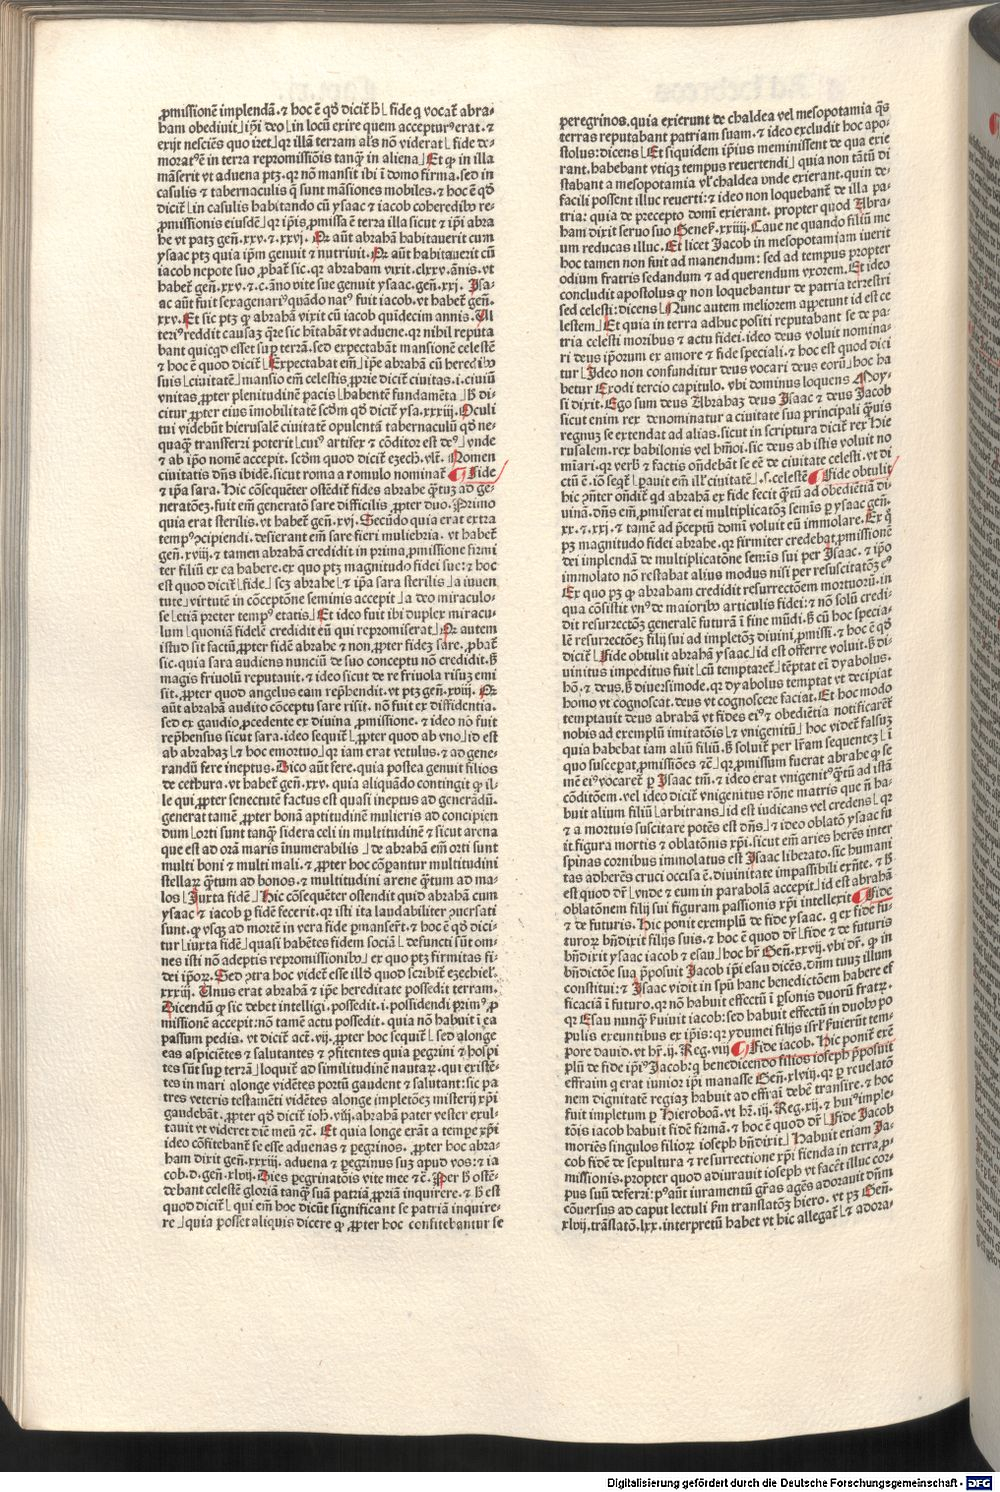 ꝓmissionē implendā. ⁊ hoc ē qđ dicit̄ h̄ ⌊fide q vocat᷑ abra-
ham obediuit⌋ ip̄i deo ⌊in locū exire quem acceptur᷒ erat. ⁊
exijt nesciēs quo iret⌋ qꝛ illā terram al's nō viderat ⌊fide de-
morat᷒ ē in terra repromissiōis tanqꝫ in aliena⌋ Et ꝙ in illa
māserit vt aduena ptꝫ. qꝛ nō mansit ibi ī domo firma. sed in
casulis ⁊ tabernaculis q̄ sunt māsiones mobiles. ⁊ hoc ē qđ
dicit̄ ⌊in casulis habitando cū ysaac ⁊ iacob coheredibꝰ re-
ꝓmissionis eiusdē⌋ qꝛ ip̄is ꝓmissa ē terra illa sicut ⁊ ip̄i abra
he vt patꝫ geñ. xxv. ⁊. xxvi. Qꝛ aūt abrahā habitauerit cum
ysaac ptꝫ quia ip̄m genuit ⁊ nutriuit. Qꝛ aūt habitauerit cū
iacob nepote suo ꝓbat̄ sic. qꝛ abraham vixit. clxxv. ānis. vt
habet᷑ geñ. xxv. ⁊. c. āno vite sue genuit ysaac. geñ. xxj. Isa-
ac aūt fuit sexagenari᷒ quādo nat᷒ fuit iacob. vt habet᷑ geñ.
xxv. Et sic ptꝫ ꝙ abrahā vixit cū iacob quīdecim annis. Ul
teri᷒ reddit causaꝫ q̄re sic hītabāt vt aduene. qꝛ nihil reputa
bant quicqđ esset suꝑ terrā. sed expectabāt mansionē celestē
⁊ hoc ē quod dicit̄ ⌊Expectabat em̄⌋ ip̄e abrahā cū heredibꝰ
suis ⌊ciuitatē⌋ mansio em̄ celestis ꝓprie dicit᷑ ciuitas. i. ciuiū
vnitas ꝓpter plenitudinē pacis ⌊habentē fundamēta⌋ h̄ di-
citur ꝓpter eius imobilitatē scđm qđ dicit᷑ ysa. xxxiij. Oculi
tui videbūt hierusalē ciuitatē opulentā tabernaculū qđ ne-
quaqꝫ transferri poterit ⌊cui᷒ artifex ⁊ cōditor est de᷒⌋ vnde
⁊ ab ip̄o nomē accepit. scđm quod dicit᷑ ezech. vlt̄. Nomen
ciuitatis dn̄s ibidē. sicut roma a romulo nominat᷑ ¶ ⌊Fide
⁊ ip̄a sara. Hic cōsequēter ostēdit᷑ fides abrahe q̄tuꝫ ad ge-
neratōeꝫ. fuit em̄ generatō sare difficilis ꝓpter duo. Primo
quia erat sterilis. vt habet᷑ geñ. xvj. Secūdo quia erat extra
temp᷒ ꝯcipiendi. desierant em̄ sare fieri muliebria. vt habet᷑
geñ. xviij. ⁊ tamen abrahā credidit in prima ꝓmissione firmi
ter filiū ex ea habere. ex quo ptꝫ magnitudo fidei sue: ⁊ hoc
est quod dicit̄ ⌊fide⌋ scꝫ abrahe ⌊⁊ ip̄a sara sterilis⌋ a iuuen
tute ⌊virtutē in cōceptōne seminis accepit⌋ a deo miraculo-
se ⌊etiā preter temp᷒ etatis⌋ Et ideo fuit ibi duplex miracu-
lum ⌊quoniā fidelē credidit eū qui repromiserat⌋ Qꝛ autem
istud sit factū ꝓpter fidē abrahe ⁊ non ꝓpter fideꝫ sare. ꝓbat᷑
sic. quia sara audiens nunciū de suo conceptu nō credidit. s̄
magis friuolū reputauit. ⁊ ideo sicut de re friuola risuꝫ emi
sit. ꝓpter quod angelus eam rep̄hendit. vt ptꝫ geñ. xviij. Qꝛ
aūt abrahā audito cōceptu sare risit. nō fuit ex diffidentia.
sed ex gaudio ꝓcedente ex diuina ꝓmissione. ⁊ ideo nō fuit
rep̄hensus sicut sara. ideo sequit᷑ ⌊ꝓpter quod ab vno⌋ id est
ab abrahaꝫ ⌊⁊ hoc emortuo⌋ qꝛ iam erat vetulus. ⁊ ad gene-
randū fere ineptus. Dico aūt fere. quia postea genuit filios
de cethura. vt habet᷑ geñ. xxv. quia aliquādo contingit ꝙ il-
le qui ꝓpter senectutē factus est quasi ineptus ad generādū.
generat tamē ꝓpter bonā aptitudinē mulieris ad concipien
dum ⌊orti sunt tanqꝫ sidera celi in multitudinē ⁊ sicut arena
que est ad orā maris īnumerabilis⌋ de abrahā em̄ orti sunt
multi boni ⁊ multi mali. ⁊ ꝓpter hoc cōꝑantur multitudini
stellaꝝ q̄tum ad bonos. ⁊ multitudini arene q̄tum ad ma-
los ⌊Iuxta fidē⌋ Hic cōsequēter ostendit quid abrahā cum
ysaac ⁊ iacob ꝑ fidē fecerit. qꝛ isti ita laudabiliter ꝯuersati
sunt. ꝙ vsqꝫ ad mortē in vera fide ꝑmanser̄t. ⁊ hoc ē qđ dici-
tur ⌊iuxta fidē⌋ quasi habētes fidem sociā ⌊defuncti sūt om-
nes isti nō adeptis repromissionibꝰ⌋ ex quo ptꝫ firmitas fi-
dei ip̄oꝝ. Sed ꝯtra hoc videt᷑ esse illđ quod scribit᷑ ezechiel'.
xxxiij. Unus erat abrahā ⁊ ip̄e hereditate possedit terram.
Dicendū ꝙ sic debet intelligi. possedit. i. possidendi ꝑim᷒ ꝓ
missionē accepit: nō tamē actu possedit. quia nō habuit ī ea
passum pedis. vt dicit᷑ act. vij. ꝓpter hoc sequit̄ ⌊sed alonge
eas aspiciētes ⁊ salutantes ⁊ ꝯfitentes quia pegrini ⁊ hospi
tes sūt suꝑ terrā⌋ loquit᷑ ad similitudinē nautaꝝ. qui existē-
tes in mari alonge vidētes portū gaudent ⁊ salutant: sic pa
tres veteris testamēti vidētes alonge impletōeꝫ misterij xp̄i
gaudebāt. ꝓpter qđ dicit᷑ ioh̄. viij. abrahā pater vester exul-
tauit vt videret diē meū ⁊c̄. Et quia longe erāt a tempe xp̄i
ideo cōfitebant᷑ se esse aduenas ⁊ ꝑegrinos. ꝓpter hoc abra-
ham dixit geñ. xxxiij. aduena ⁊ ꝑegrinus suꝫ apud vos: ⁊ ia
cob. d. geñ. xlvij. Dies ꝑegrinatōis vite mee ⁊c̄. Per h̄ ostē-
debant celestē gloriā tanqꝫ suā patriā ꝓpriā inquirere. ⁊ h̄ est
quod dicit̄ ⌊qui em̄ hoc dicūt significant se patriā inquire-
re⌋ quia posset aliquis dicere ꝙ ꝓpter hoc confitebantur se
peregrinos. quia exierunt de chaldea vel mesopotamia q̄s
terras reputabant patriam suam. ⁊ ideo excludit hoc apo-
stolus: dicens ⌊Et siquidem ip̄ius meminissent de qua exie
rant. habebant vtiqꝫ tempus reuertendi⌋ quia non tātū di
stabant a mesopotamia vl' chaldea vnde exierant. quin de-
facili possent illuc reuerti: ⁊ ideo non loquebant᷑ de illa pa-
tria: quia de precepto domī exierant. propter quod Abra-
ham dixit seruo suo Genes̄. xxiiij. Caue ne quando filiū me
um reducas illuc. Et licet Jacob in mesopotamiam iuerit
hoc tamen non fuit ad manendum: sed ad tempus propter
odium fratris sedandum ⁊ ad querendum vxorem. Et ideo
concludit apostolus ꝙ non loquebantur de patria terrestri
sed celesti: dicens ⌊Nunc autem meliorem appetunt id est ce
lestem⌋ Et quia in terra adhuc positi reputabant se de pa-
tria celesti moribus ⁊ actu fidei. ideo deus voluit nomina-
ri deus ip̄orum ex amore ⁊ fide speciali. ⁊ hoc est quod dici
tur ⌊Ideo non confunditur deus vocari deus eorū⌋ hoc ha
betur Exodi tercio capitulo. vbi dominus loquens Moy-
si dixit. Ego sum deus Abrahaꝫ deus Isaac ⁊ deus Jacob
sicut enim rex denominatur a ciuitate sua principali q̄uis
regnuꝫ se extendat ad alias. sicut in scriptura dicit᷑ rex Hie
rusalem. rex babilonis vel hm̄oi. sic deus ab istis voluit no
mīari. qꝛ verbꝭ ⁊ factis on̄debāt se eē de ciuitate celesti. vt di
ctū ē. iō seqt̄ ⌊ꝑauit em̄ ill' ciuitatē⌋. s. celestē ¶ ⌊Fide obtulit
hic ꝯn̄ter on̄dit᷑ qđ abrahā ex fide fecit q̄tū ad obediētiā di
uinā. dn̄s em̄ ꝓmiserat ei multiplicatōeꝫ semīs ꝑ ysaac geñ.
xx. ⁊. xxj. ⁊ tamē ad p̄ceptū domī voluit eū immolare. Ex q̊
pꝫ magnitudo fidei abrahe. qꝛ firmiter credebat ꝓmissionē
dei implendā de multiplicatōne semīs sui per Isaac. ⁊ ip̄o
immolato nō restabat alius modus nisi per resuscitatōꝫ e᷒
Ex quo pꝫ ꝙ abraham credidit resurrectōem mortuorū. in
qua cōsistit vn᷒ de maioribꝰ articulis fidei: ⁊ nō solū credi-
dit resurrectōꝫ generalē futurā ī fine mūdi. s̄ cū hoc specia-
lē resurrectōeꝫ filij sui ad impletōꝫ diuini ꝓmissi. ⁊ hoc ē qđ
dicit̄ ⌊Fide obtulit abrahā ysaac⌋ id est offerre voluit. s̄ di-
uinitus impeditus fuit ⌊cū temptaret᷑⌋ tēptat ei dyabolus.
hō. ⁊ deus. s̄ diuersimode. qꝛ dyabolus temptat vt decipiat
homo vt cognoscat. deus vt cognoscere faciat. Et hoc modo
temptauit deus abrahā vt fides ei᷒ ⁊ obediētia notificaret᷑
nobis ad exemplū imitatōis ⌊⁊ vnigenitū⌋ hoc videt᷑ falsuꝫ
quia habebat iam aliū filiū. s̄ soluit᷑ per lr̄am sequentē ⌊ī
quo susceperat ꝓmissiōes ⁊c̄⌋ qꝛ ꝓmissum fuerat abrahe ꝙ se
mē ei᷒ vocaret᷑ ꝑ Isaac tm̄. ⁊ ideo erat vnigenit᷒ q̄tū ad istā
cōditōem. vel ideo dicit᷑ vnigenitus rōne matris que n̄ ha-
buit alium filiū ⌊arbitrans⌋ id est iudicans vel credens ⌊qꝛ
⁊ a mortuis suscitare potēs est dn̄s⌋ ⁊ ideo oblatō ysaac fu
it figura mortis ⁊ oblatōnis xp̄i. sicut em̄ aries herēs inter
spinas cornibus immolatus est Isaac liberato. sic humani
tas adherēs cruci occisa ē. diuinitate impassibili exn̄te. ⁊ h̄
est quod dr̄ ⌊vnde ⁊ eum in parabolā accepit⌋ id est abrahā
oblatōnem filij sui figuram passionis xp̄i intellexit ¶ ⌊Fide
⁊ de futuris. Hic ponit exemplū de fide ysaac. q ex fide fu-
turoꝝ bn̄dixit filijs suis. ⁊ hoc ē quod dr̄ ⌊fide ⁊ de futuris
bn̄dixit ysaac iacob ⁊ esau⌋ hoc hr̄ Geñ. xxvij. vbi dr̄. ꝙ in
bn̄dictōe sua p̄posuit Jacob ip̄i esau dicēs. dn̄m tuuꝫ illum
constitui: ⁊ Isaac vidit in sp̄ū hanc benedictōem habere ef
ficaciā ī futuro. qꝛ nō habuit effectū ī ꝑsonis duorū fratꝝ.
qꝛ Esau nunqꝫ s̄uiuit iacob: sed habuit effectū in duobꝰ po
pulis exeuntibus ex ip̄is: qꝛ ydumei filijs isrl' s̄uierūt tem-
pore dauid. vt hr̄. ij. Reg. viij ¶ ⌊Fide iacob. Hic ponit᷑ exē
plū de fide ip̄i᷒ Jacob: q benedicendo filios ioseph p̄posuit
effraim q erat iunior ip̄i manasse Geñ. xlviij. qꝛ ꝑ reuelatō
nem dignitatē regiaꝫ habuit ad effraī debē transire. ⁊ hoc
fuit impletum ꝑ Hieroboā. vt hr̄. iij. Reg. xij. ⁊ hui᷒ imple-
tōis iacob habuit fidē firmā. ⁊ hoc ē quod dr̄ ⌊Fide Jacob
moriēs singulos filioꝝ ioseph bn̄dixit⌋ Habuit etiam Ja-
cob fidē de sepultura ⁊ resurrectione xp̄i fienda in terra ꝓ-
missionis. propter quod adiurauit ioseph vt facēt illuc cor-
pus suū deferri: p᷒ aūt iuramentū gr̄as agēs adorauit dn̄m
cōuersus ad caput lectuli s̄m translatōꝫ hiero. vt pꝫ Geñ.
xlvij. trāslatō. lxx. interpretū habet vt hic allegat᷑ ⌊⁊ adora-
Digitalisierung gefördert durch die Deutsche Forschungsgemeinschaft - DFG